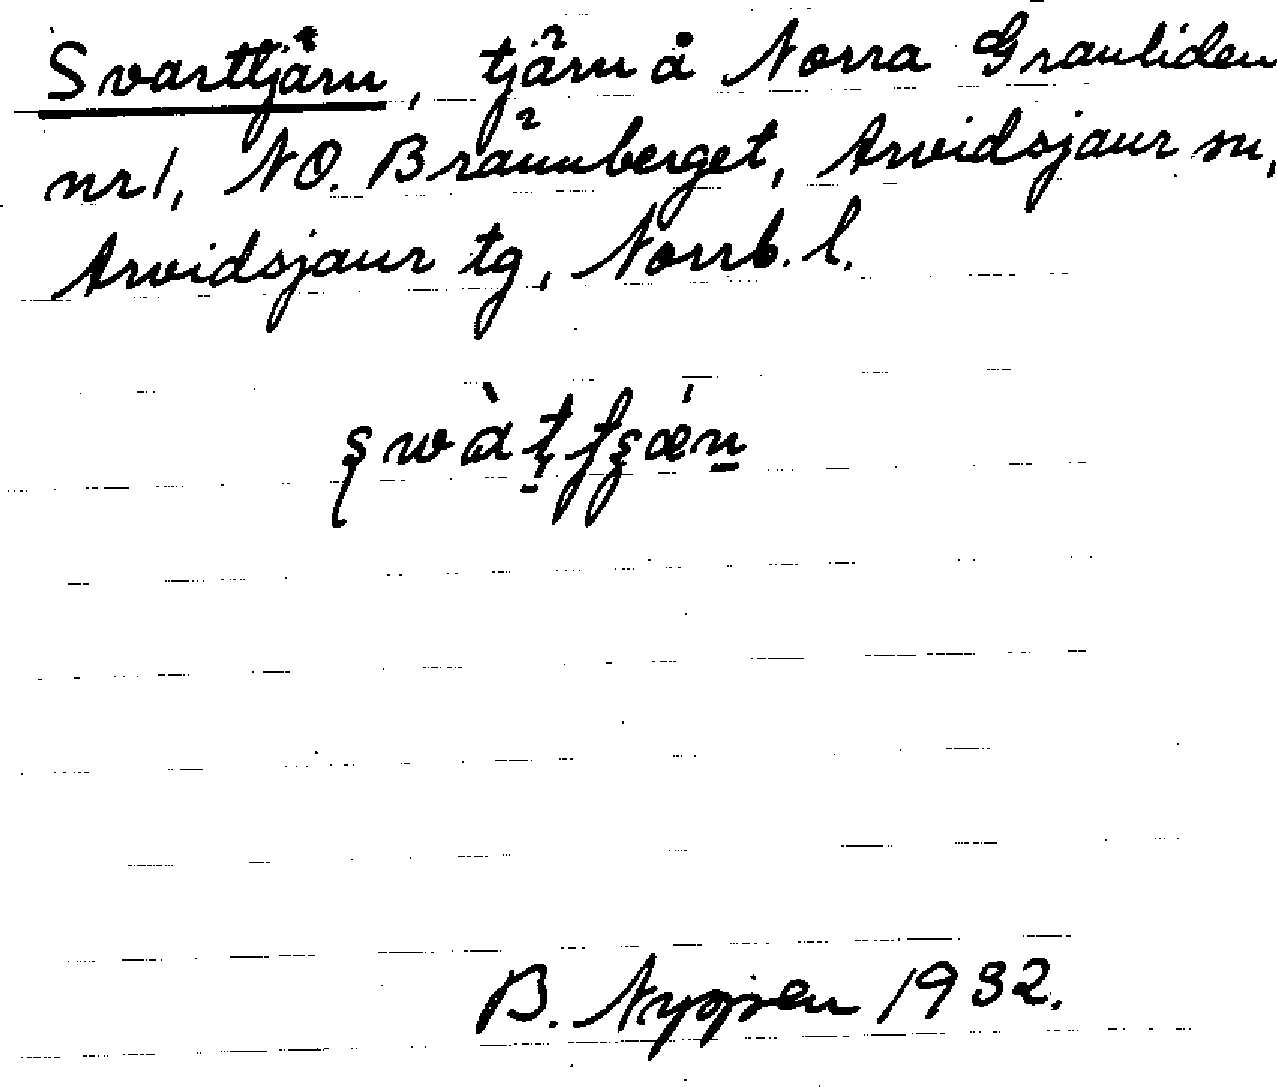 Svarttjärn, tjärn å Norra Granliden
nr 1, NO. Brännberget, Arvidsjaur sn,
Arvidsjaur tg, Norrb. l.
B. Nyppen 1932.